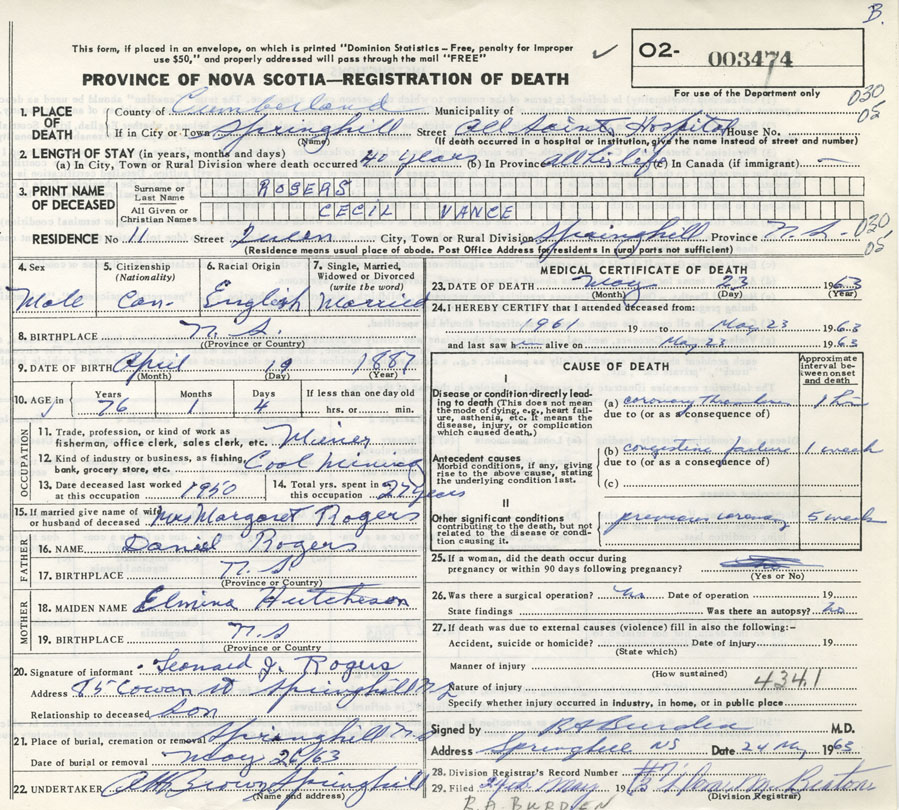 B.
This form, if placed in an envelope, on which is printed "Dominion Statistics – Free, penalty for improper
use $50," and properly addressed will pass through the mail "FREE"
✓
O2- 003474
For use of the Department only
PROVINCE OF NOVA SCOTIA—REGISTRATION OF DEATH
030
05
1. PLACE OF DEATH
County of Cumberland Municipality of
If in City or Town Springhill Street All Saints Hospital House No.
(Name) (If death occurred in a hospital or institution, give the name instead of street and number)
2. LENGTH OF STAY (in years, months and days)
(a) In City, Town or Rural Division where death occurred 40 years (b) In Province all his life (c) In Canada (if immigrant) —
3. PRINT NAME OF DECEASED
Surname or Last Name ROGERS
All Given or Christian Names CECIL VANCE
030
05
RESIDENCE No 11 Street Queen City, Town or Rural Division Springhill Province N.S.
(Residence means usual place of abode. Post Office Address for residents in rural parts not sufficient)
4. Sex Male
5. Citizenship (Nationality) Can-
6. Racial Origin English
7. Single, Married, Widowed or Divorced (write the word) Married
8. BIRTHPLACE N.S.
(Province or Country)
9. DATE OF BIRTH April 19 1887
(Month) (Day) (Year)
10. AGE in Years 76 Months 1 Days 4 If less than one day old
hrs. or min.
OCCUPATION
11. Trade, profession, or kind of work as
fisherman, office clerk, sales clerk, etc. Miner
12. Kind of industry or business, as fishing,
bank, grocery store, etc. Coal mining
13. Date deceased last worked
at this occupation 1950
14. Total yrs. spent in
this occupation 27 years
15. If married give name of wife
or husband of deceased Mrs Margaret Rogers
FATHER
16. NAME Daniel Rogers
17. BIRTHPLACE N.S
(Province or Country)
MOTHER
18. MAIDEN NAME Elmina Hutcheson
19. BIRTHPLACE N.S
(Province or Country)
20. Signature of informant Leonard J. Rogers
Address 85 Cowan st Springhill N.S
Relationship to deceased Son
21. Place of burial, cremation or removal Springhill N.S
Date of burial or removal May 26/63
22. UNDERTAKER Brown Springhill
(Name and address)
MEDICAL CERTIFICATE OF DEATH
23. DATE OF DEATH May 23 1963
(Month) (Day) (Year)
24. I HEREBY CERTIFY that I attended deceased from:
1961 19 to May 23 1963
and last saw him alive on May 23 1963
CAUSE OF DEATH
Approximate interval between onset and death
I
Disease or condition directly leading
to death (This does not mean
the mode of dying, e.g., heart failure,
asthenia, etc. It means the
disease, injury, or complication
which caused death.)
(a) coronary thrombosis 1 hr
due to (or as a consequence of)
Antecedent causes
Morbid conditions, if any, giving
rise to the above cause, stating
the underlying condition last.
(b) congestive failure 1 week
due to (or as a consequence of)
(c)
II
Other significant conditions
contributing to the death, but not
related to the disease or condition
causing it.
previous coronary 5 weeks
25. If a woman, did the death occur during
pregnancy or within 90 days following pregnancy?
(Yes or No)
26. Was there a surgical operation? No Date of operation 19
State findings Was there an autopsy? No
27. If death was due to external causes (violence) fill in also the following:–
Accident, suicide or homicide? Date of injury 19
(State which)
Manner of injury
(How sustained)
Nature of injury 4341
Specify whether injury occurred in industry, in home, or in public place
Signed by R A Burden M.D.
Address Springhill NS Date 24 May 1963
28. Division Registrar's Record Number
29. Filed May 1963
(Division Registrar)
R.A. BURDEN